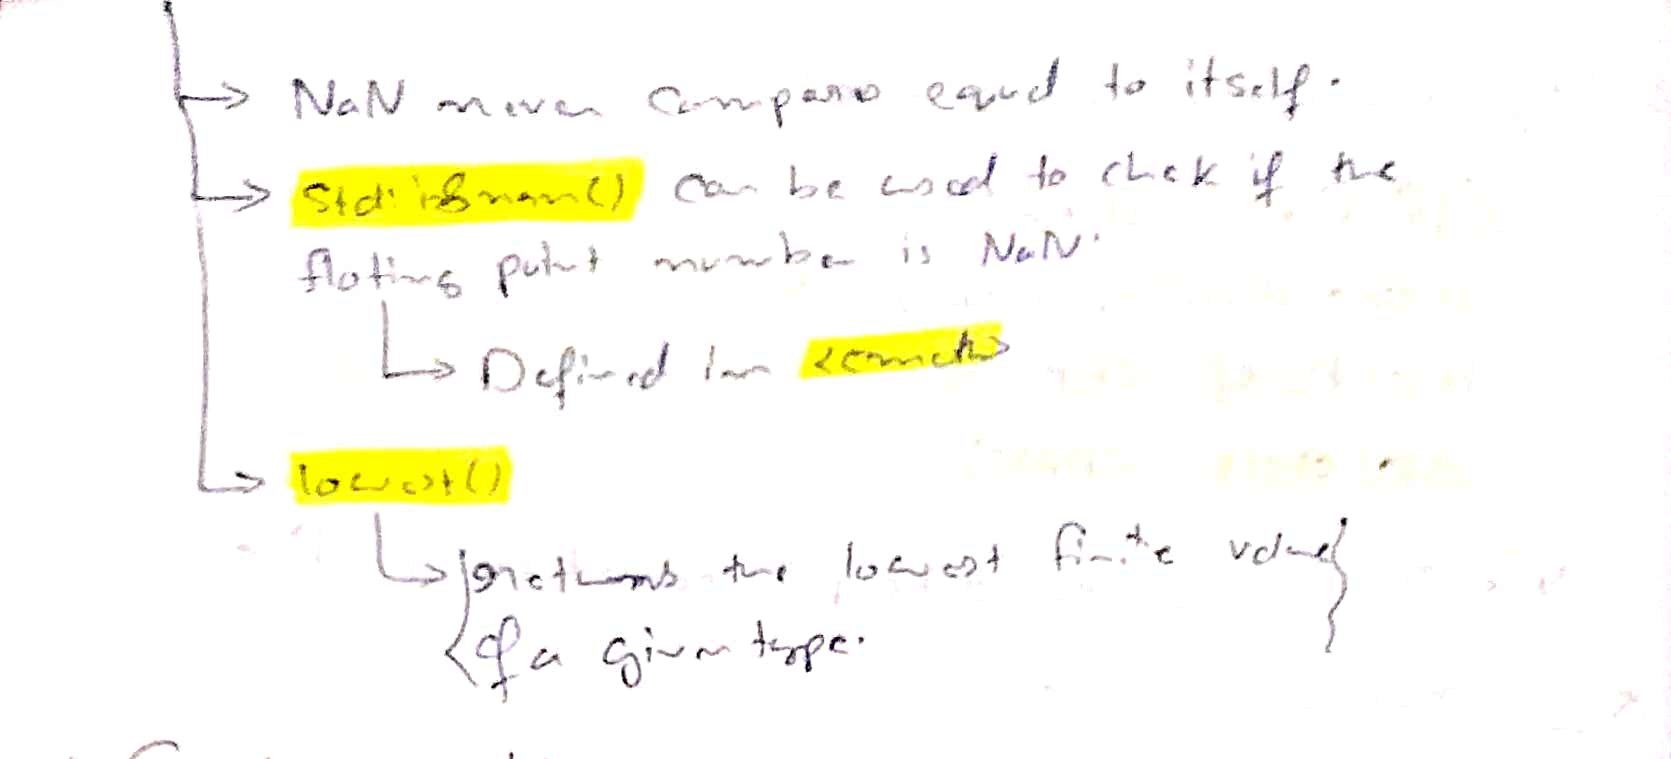 → NaN never compares equal to itself.
→ std::isnan() can be used to chek if the
floting point number is NaN.
→ Defined in <cmath>
→ lowest()
→ {returns the lowest finite value}
of a given type.